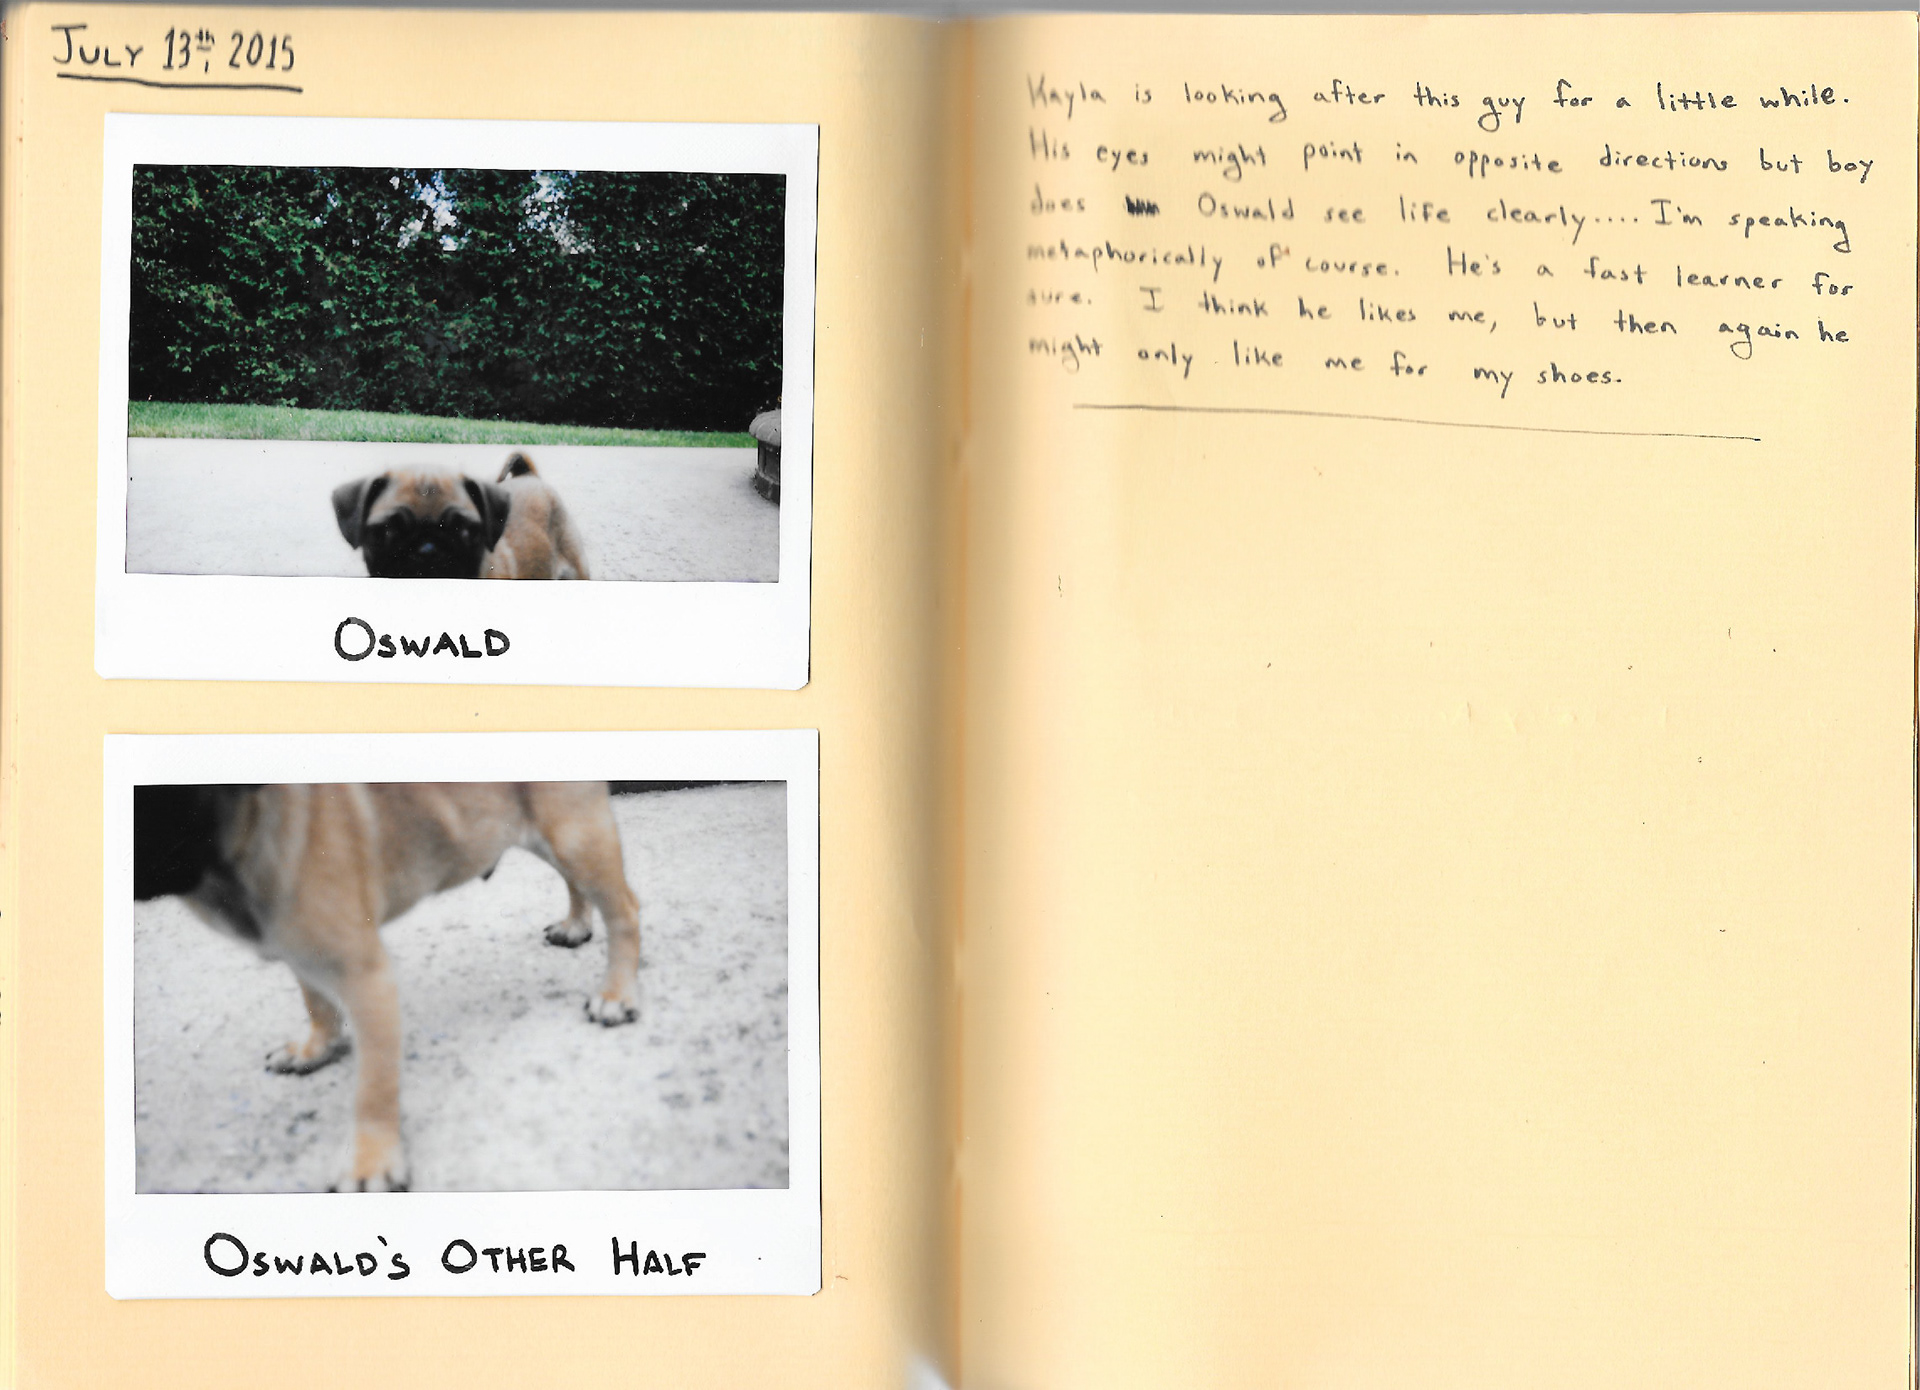 July 13th, 2015
Oswald
Oswald's Other Half
Kayla is looking after this guy for a little while.
His eyes might point in opposite directions but boy
does Oswald see life clearly.... I'm speaking
metaphorically of course. He's a fast learner for
sure. I think he likes me, but then again he
might only like me for my shoes.